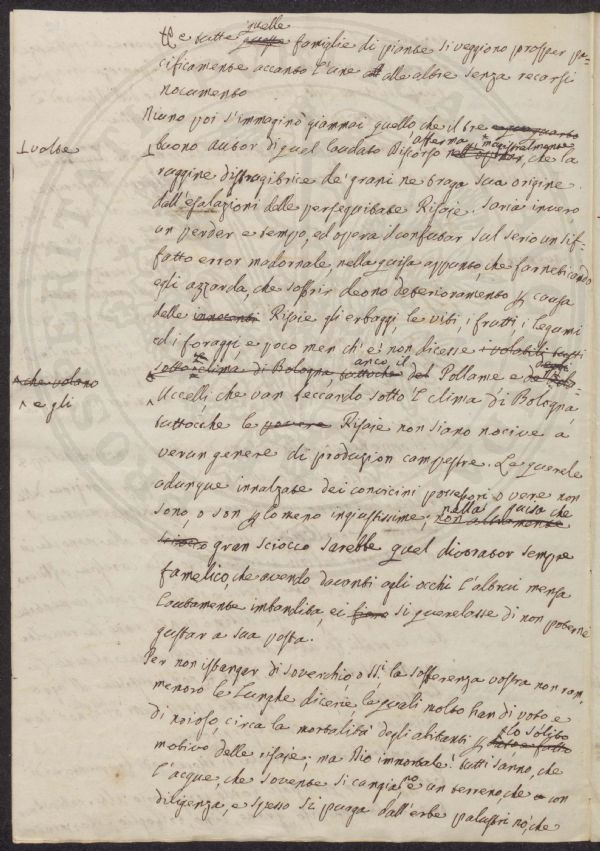 e tutte quelle famiglie di piante si veggiono prosper pa-
cificamente accanto l'une alle altre senza recarsi
nocumento
Niuno poi s'immaginò giammai quello che il tre
⊥ volte
buono autor di quel laudato Discorso afferma magistralmente, che la
ruggine distrugitrice de' grani ne traga sua origine
dall'esalazioni delle perseguitate Risaje. Saria invero
un perder e tempo, ed opera il confutar sul serio un sif-
fatto error madornale, nella guisa appunto che farneticando
egli azzarda, che soffrir deono deterioramento p causa
delle innocenti Risaje gli erbaggi, le viti, i frutti, i legumi
ed i foraggi, e poco men ch'è non dicesse i volatili tutti
sotto il clima di Bologna, tuttochè anco il Pollame e degli
che volano
e gli
Uccelli, che van beccando sotto l clima di Bologna,
tuttocche le povere Risaje non siano nocive a
verun genere di produzion campestre. Le querele
adunque innalzate dei convicini possessori o vere non
sono, o son p lo meno ingiustissime; nella guisa che
non altramente
sciocco gran sciocco sarebbe quel divorator sempre
famelico, che avendo davanti agli occhi l'altrui mensa
lautamente imbandita, ei si querelasse di non poterne
gustar a sua posta.
Per non istancar di soverchio, o SS.i la sofferenza vostra non ram,
mentro le lunghe dicerie, le quali molto han di voto, e
di nojoso, circa la mortalità degli abitanti p lo solito
motivo delle risaje; ma Dio immortale! tutti sanno, che
l'acque, che sovente si cangiano, e un terreno, che con
diligenza, e spesso si purga dall'erbe palustri nò, che